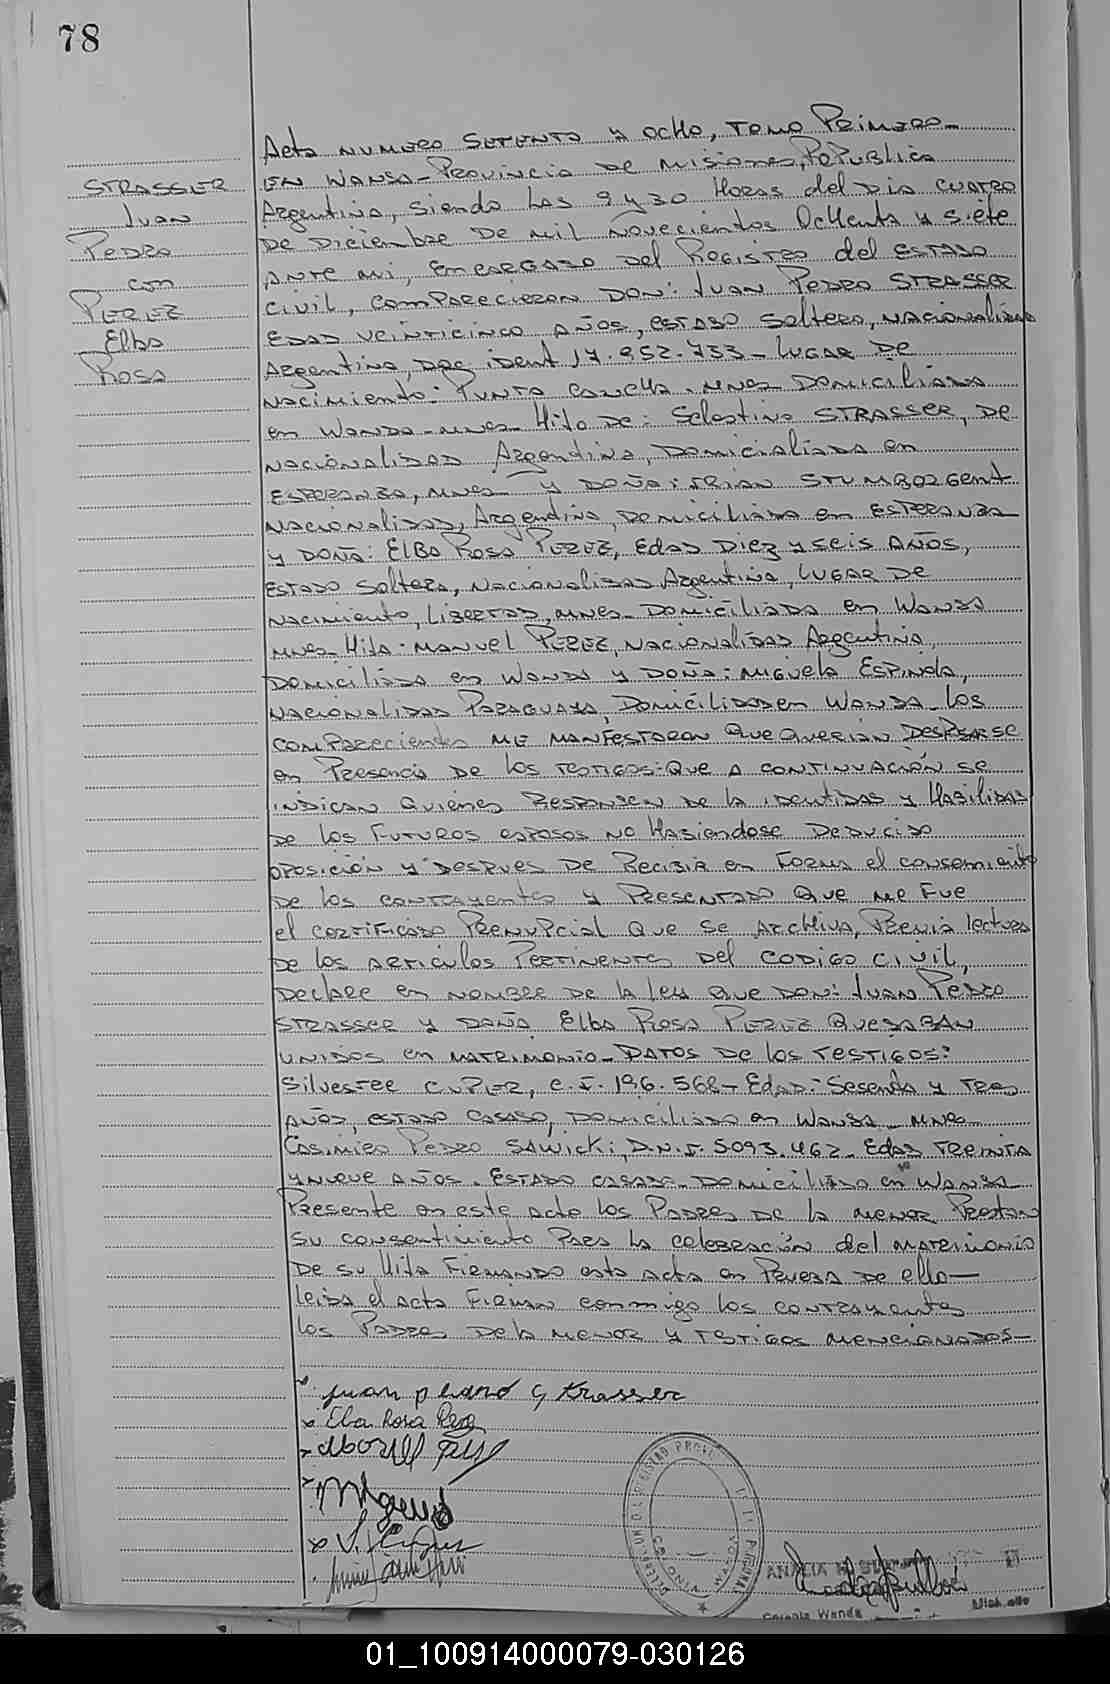 78
STRASSER
Juan
Pedro
con
PEREZ
Elba
Rosa
Acta NUMERO SETENTA Y OCHO, TOMO PRIMERO-
EN WANDA-PROVINCIA DE MISIONES, REPUBLICA
Argentina, siendo las 9 y 30 Horas del Dia CUATRO
DE Diciembre DE Mil Novecientos Ochenta y siete
ANTE mi, ENCARGADO DEL REGISTRO del ESTADO
CIVIL, COMPARECIERON DON: JUAN PEDRO STRASSER
EDAD VEINTICINCO AÑOS, ESTADO Soltero, NACIONALIDAD
Argentina, DOC ident 17.952.733- LUGAR DE
NACIMIENTO: PUNTO CONCHA-MNES- DOMICILIADO
en WANDA-MNES- HIJO DE: Selestino STRASSER, DE
NACIONALIDAD Argentina, DOMICIALIADO en
ESPERANZA, MNES- Y DOÑA: IRIAN
NACIONALIDAD, Argentina, DOMICILIADA en ESPERANZA
Y DOÑA: ELBA ROSA PEREZ, EDAD DIEZ Y SEIS AÑOS,
ESTADO Soltera, NACIONALIDAD Argentina, LUGAR DE
NACIMIENTO, LIBERTAD, MNES- DOMICILIADA en WANDA
MNES- HIJA: MANUEL PEREZ, NACIONALIDAD Argentina,
DOMICILIADA en WANDA Y DOÑA: MIGUELA ESPINOLA,
NACIONALIDAD PARAGUAYA, DOMICILIADOS en WANDA- LOS
COMPARECIENTES ME MANFESTARON QUE QUERIAN DESPOSARSE
en PRESENCIA DE LOS TESTIGOS: QUE A CONTINUACIÓN SE
INDICAN QUIENES RESPONDEN DE LA IDENTIDAD Y HABILIDAD
DE LOS FUTUROS ESPOSOS NO HABIENDOSE DEDUCIDO
OPOSICIÓN Y DESPUES DE RECIBIR en FORMA el
DE LOS CONTRAYENTES Y PRESENTADO QUE ME FUE
el CERTIFICADO PRENUPCIAL QUE SE ARCHIVA, PREVIA lectura
DE LOS ARTICULOS PERTINENTES DEL CODIGO CIVIL,
DECLARE en NOMBRE DE LA LEY QUE DON: JUAN PEDRO
STRASSER Y DOÑA ELBA ROSA PEREZ QUEDABAN
UNIDOS en MATRIMONIO- DATOS DE LOS TESTIGOS:
SILVESTRE CUPER, C.I. 196.568- EDAD: SESENTA Y TRES
AÑOS, ESTADO CASADO, DOMICILIADO en WANDA- MNES
CASIMIRO PEDRO SAWICKI, D.N.I. 5093.462- EDAD TREINTA
Y NUEVE AÑOS- ESTADO CASADO- DOMICILIADO en WANDA
PRESENTE en este ACTO LOS PADRES DE LA MENOR PRESTAN
SU CONSENTIMIENTO PARA LA CELEBRACIÓN del MATRIMONIO
DE SU HIJA FIRMANDO esta ACTA en PRUEBA DE ello-
LEIDA el ACTA FIRMAN conmigo los CONTRAYENTES
LOS PADRES DE LA MENOR Y TESTIGOS MENCIONADOS-
Elba Rosa Perez
01_100914000079-030126